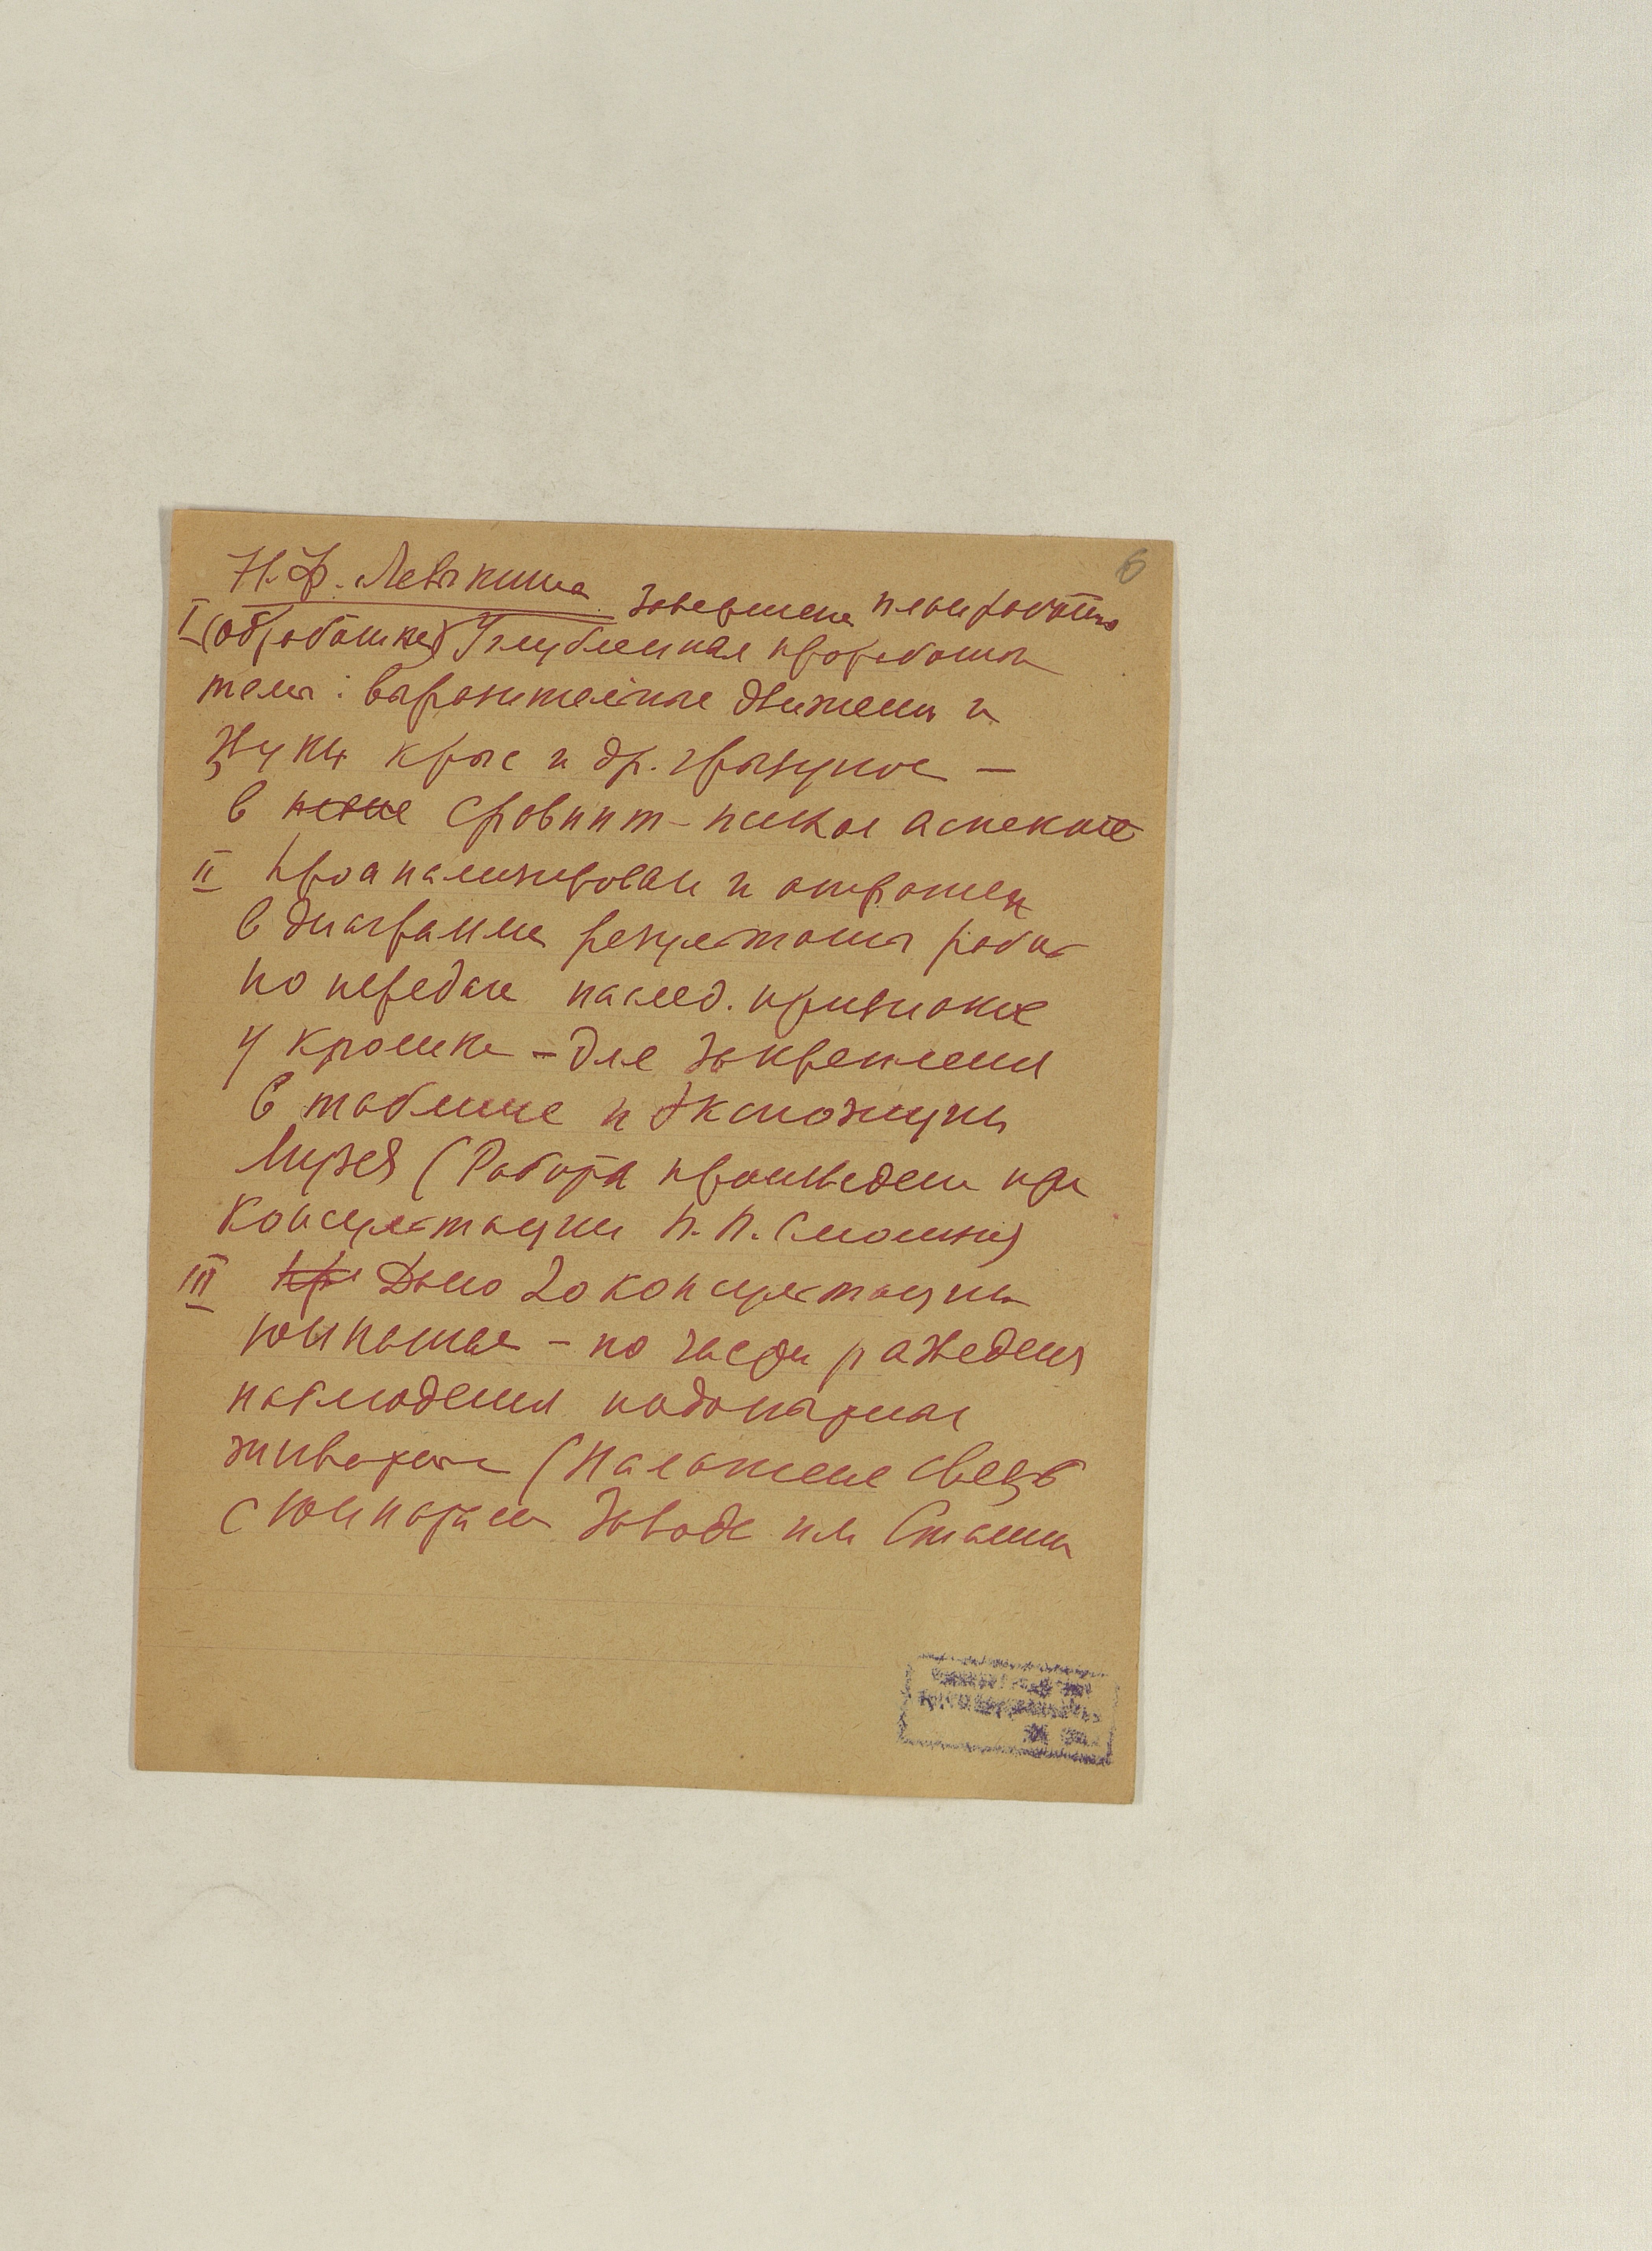 6
Н.Ф. Левыкина Завершена план. работа
I (обработана) Углубленная проработка
темы: выразительные движения и
звуки крыс и др. грызунов —
в сравнит-псих. аспекте
II Проанализирован и отражен
в диаграмме результаты работ
по передаче наслед. признаков
у кролика – для закрепления
в таблице и экспозиции
Музея (Работа произведена при
консультации П.П. Смолина)
III Дано 20 консультаций
юннатам – по части разведения
наблюдения лабораторных
животных (Налажение связь
с юннатами Завода им Сталина